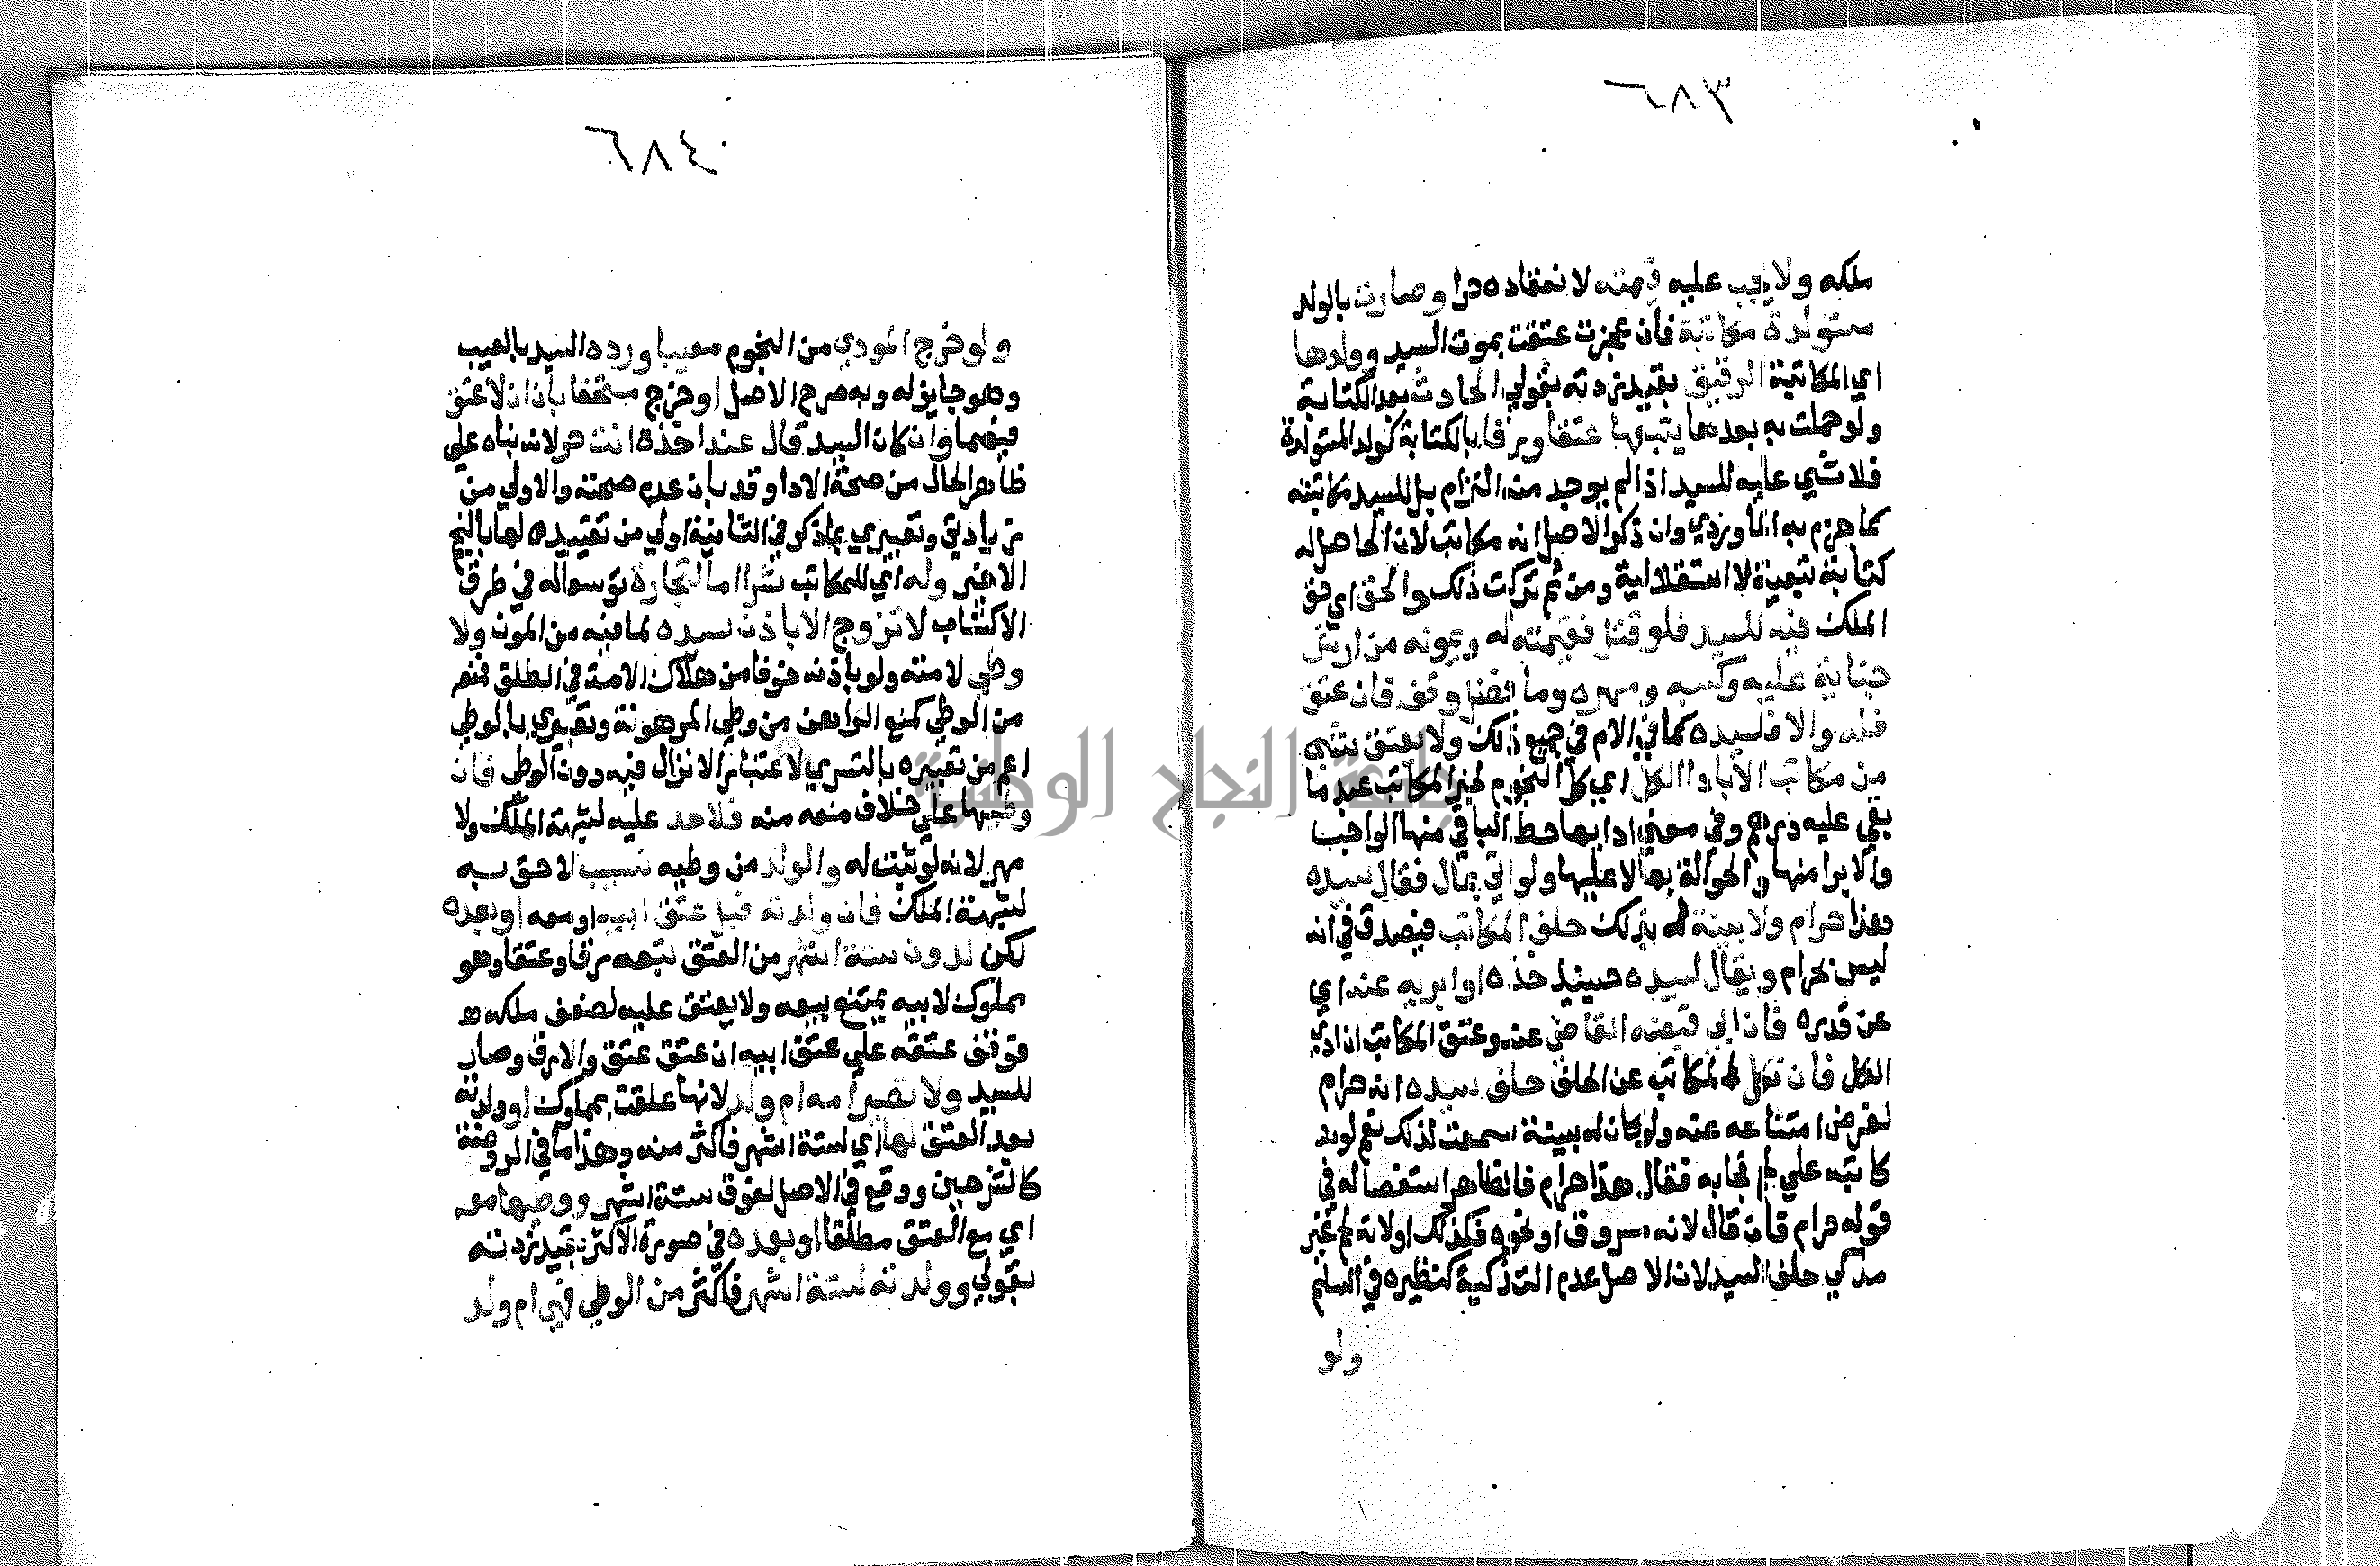 ٦٨٣
ملكه ولا يجب عليه قيمته لانعقاده حرا وصارت بالولد
مستولدة مكاتبة فان عجزت عتقت بموت السيد وولدها
اي المكاتبة الرقيق بقيد زدته بقولي الحادث بعد الكتابة
ولو حملت به بعدها يتبعها عتقا ورقا بالكتابة كولد المستولدة
فلا شي عليه للسيد اذ لم يوجد منه التزام بل للسيد مكاتبته
كما جزم به الماوردي وان ذكر الاصل انه مكاتب لان الحاصل له
كتابة تبعية لا استقلالية ومن ثم تركت ذلك والحق اي حق
الملك فيه للسيد فلو قتل فقيمته له ويمونه من ارش
جناية عليه وكسبه ومهره وما فضل وقف فان عتق
فله والا فلسيده كما في الام في جميع ذلك ولا يعتق شي
من مكاتب الا باداء الكل اي كل النجوم لخبر المكاتب عبد ما
بقي عليه درهم وفي معنى ادايها حط الباقي منها الواجب
والابرا منها والحوالة بها لا عليها ولو اتي بمال فقال سيده
هذا حرام ولا بينة له بذلك حلف المكاتب فيصدق في انه
ليس بحرام ويقال لسيده حينيذ خذه او ابريه عنه اي
عن قدره فان ابي قبضه القاضي عنه وعتق المكاتب ان ادي
الكل فان نكل المكاتب عن الحلف حلف سيده انه حرام
لغرض امتناعه عنه ولو كان له بينة سمعت لذلك نعم لو
كاتبه علي لحم فجا به فقال هذا حرام فالظاهر استفصاله في
قوله حرام فان قال لانه مسروق او نحوه فكذلك او لانه لحم غير
مذكي حلف السيد لان الاصل عدم التذكية كنظيره في السلم
ولو
٦٨٤
ولو خرج المودي من النجوم معيبا ورده السيد بالعيب
وهو جايز له وبه صرح الاصل او خرج مستحقا بان ان لا عتق
فيهما وان كان السيد قال عند اخذه انت حر لانه بناه علي
ظاهر الحال من صحة الادا وقد بان عدم صحته والاولي من
زيادتي وتعبيري بما ذكر في الثانية اولي من تقييده لها بالنجم
الاخير وله اي للمكاتب شرا اما لتجارة توسعا له في طرق
الاكتساب لا تزوج الا باذن سيده لما فيه من المون ولا
وطي لامته ولو باذنه خوفا من هلاك الامة في الطلق فمنعه
من الوطي كمنع الراهن من وطي المرهونة وتعبيري بالوطي
اعم من تعبيره بالتسري لاعتبار الانزال فيه دون الوطي فان
وطيها علي خلاف منعه منه فلا حد عليه لشبهة الملك ولا
مهر لانه لو ثبت له والولد من وطيه نسيب لاحق به
لشبهة الملك فان ولدته قبل عتق ابيه او معه او بعده
لكن لدون ستة اشهر من العتق تبعه رقا وعتقا وهو
مملوك لابيه يمتنع بيعه ولا يعتق عليه لضعف ملكه
فوقف عتقه علي عتق ابيه ان عتق عتق والا رق وصار
للسيد ولا تصير امه ام ولد لانها علقت بمملوك او ولدته
بعد العتق لها اي لستة اشهر فاكثر منه وهذا ما في الروضة
كالشرحين ووقع في الاصل لفوق ستة اشهر ووطيها معه
اي مع العتق مطلقا او بعده في صورة الاكثر بقيد زدته
بقولي وولدته لستة اشهر فاكثر من الوطي فهي ام ولد
جامعة النجاح الوطنية